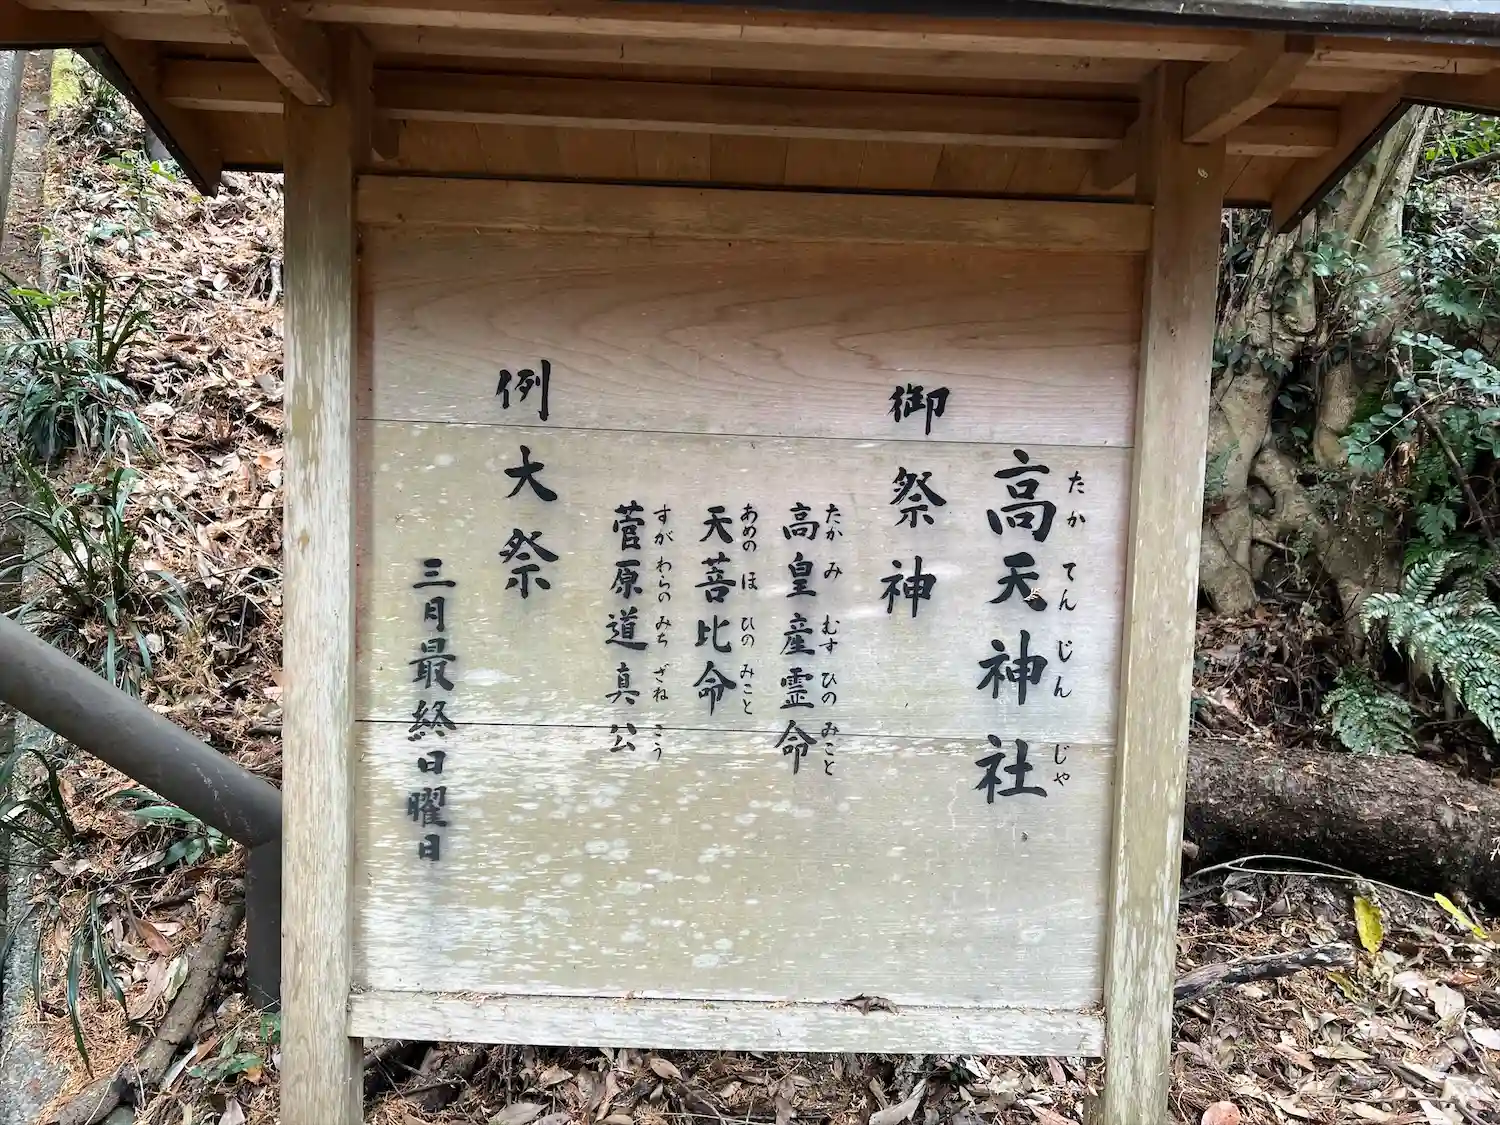 高天神社
たかてんじんじゃ
御祭神
高皇産霊命
たかみむすひのみこと
天菩比命
あめのほひのみこと
菅原道真公
すがわらのみちざねこう
例大祭
三月最終日曜日